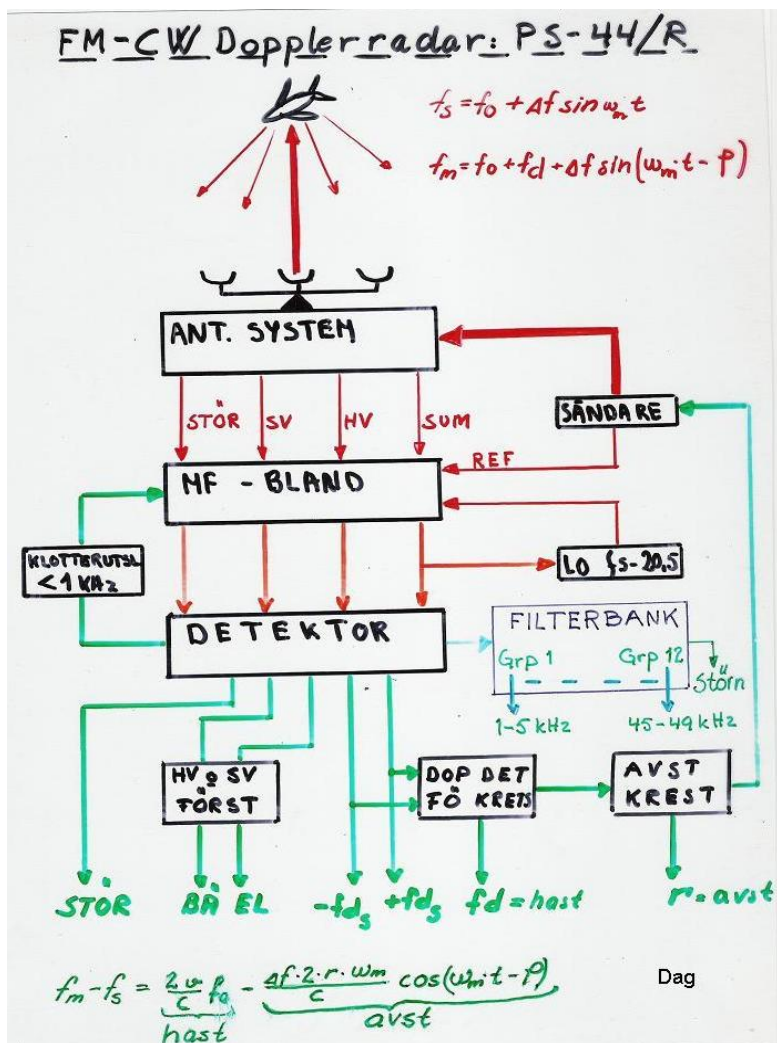 FM-CW Dopplerradar: PS-44/R
fs = fo + Δf sin ωm t
fm = fo + fd + Δf sin(ωm·t - φ)
ANT. SYSTEM
STÖR SV HV SUM
SÄNDARE
REF
MF - BLAND
KLOTTERUTSL
<1 kHz
LO fs-20,5
DETEKTOR
FILTERBANK
Grp 1 Grp 12
Störn
1-5 kHz 45-49 kHz
HV o SV
FÖRST
DOP DET
FÖ KRETS
AVST
KREST
STÖR BÄ EL -fds +fds fd=hast r=avst
fm-fs = 2v/c fo - Δf·2·r·ωm/c cos(ωm·t-φ)
hast avst
Dag